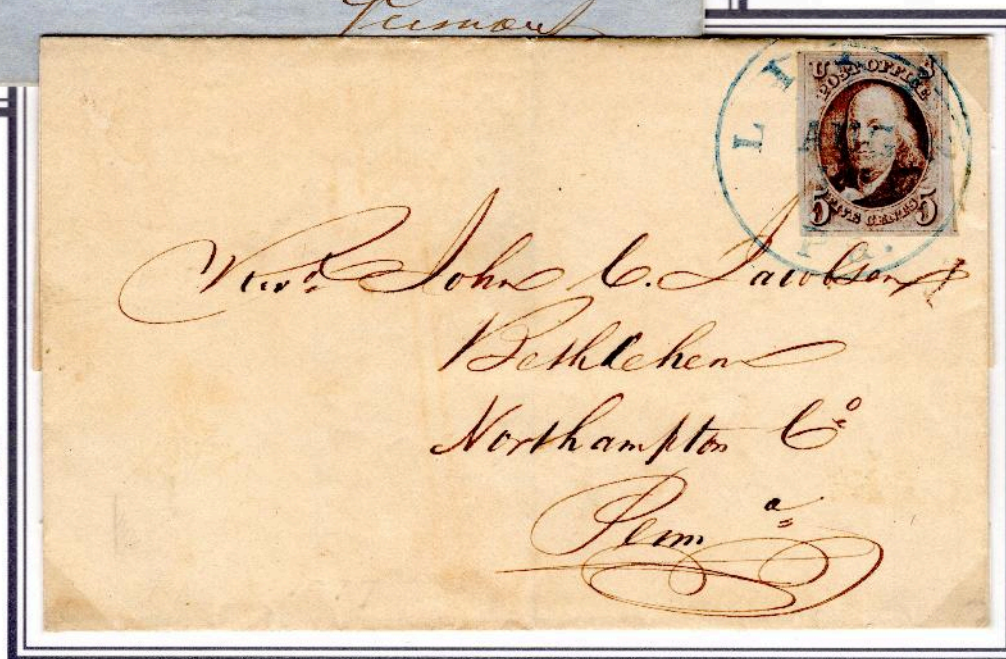 Vermont
U S
POST OFFICE
FIVE CENTS
5 5
L I
Pa.
Revd. John C. Jacobson
Bethlehem
Northampton Co
Penna